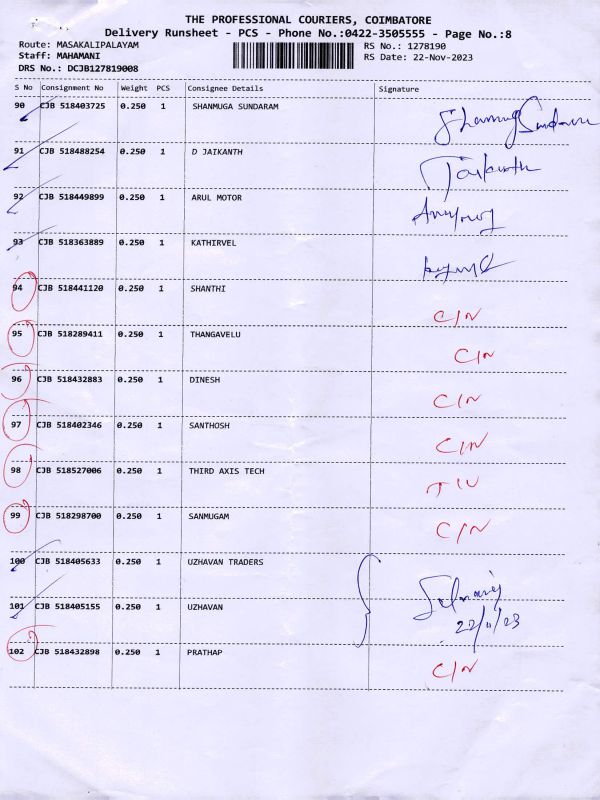 THE PROFESSIONAL COURIERS, COIMBATORE
Delivery Runsheet - PCS - Phone No.:0422-3505555 - Page No.:8
Route: MASAKALIPALAYAM RS No.: 1278190
Staff: MAHAMANI RS Date: 22-Nov-2023
DRS No.: DCJB127819008
S No Consignment No Weight PCS Consignee Details Signature
90 CJB 518403725 0.250 1 SHANMUGA SUNDARAM
91 CJB 518488254 0.250 1 D JAIKANTH
92 CJB 518449899 0.250 1 ARUL MOTOR
93 CJB 518363889 0.250 1 KATHIRVEL
94 CJB 518441120 0.250 1 SHANTHI C/N
95 CJB 518289411 0.250 1 THANGAVELU C/N
96 CJB 518432883 0.250 1 DINESH C/N
97 CJB 518402346 0.250 1 SANTHOSH C/N
98 CJB 518527006 0.250 1 THIRD AXIS TECH
99 CJB 518298700 0.250 1 SANMUGAM C/N
100 CJB 518405633 0.250 1 UZHAVAN TRADERS
101 CJB 518405155 0.250 1 UZHAVAN 22/11/23
102 CJB 518432898 0.250 1 PRATHAP C/N